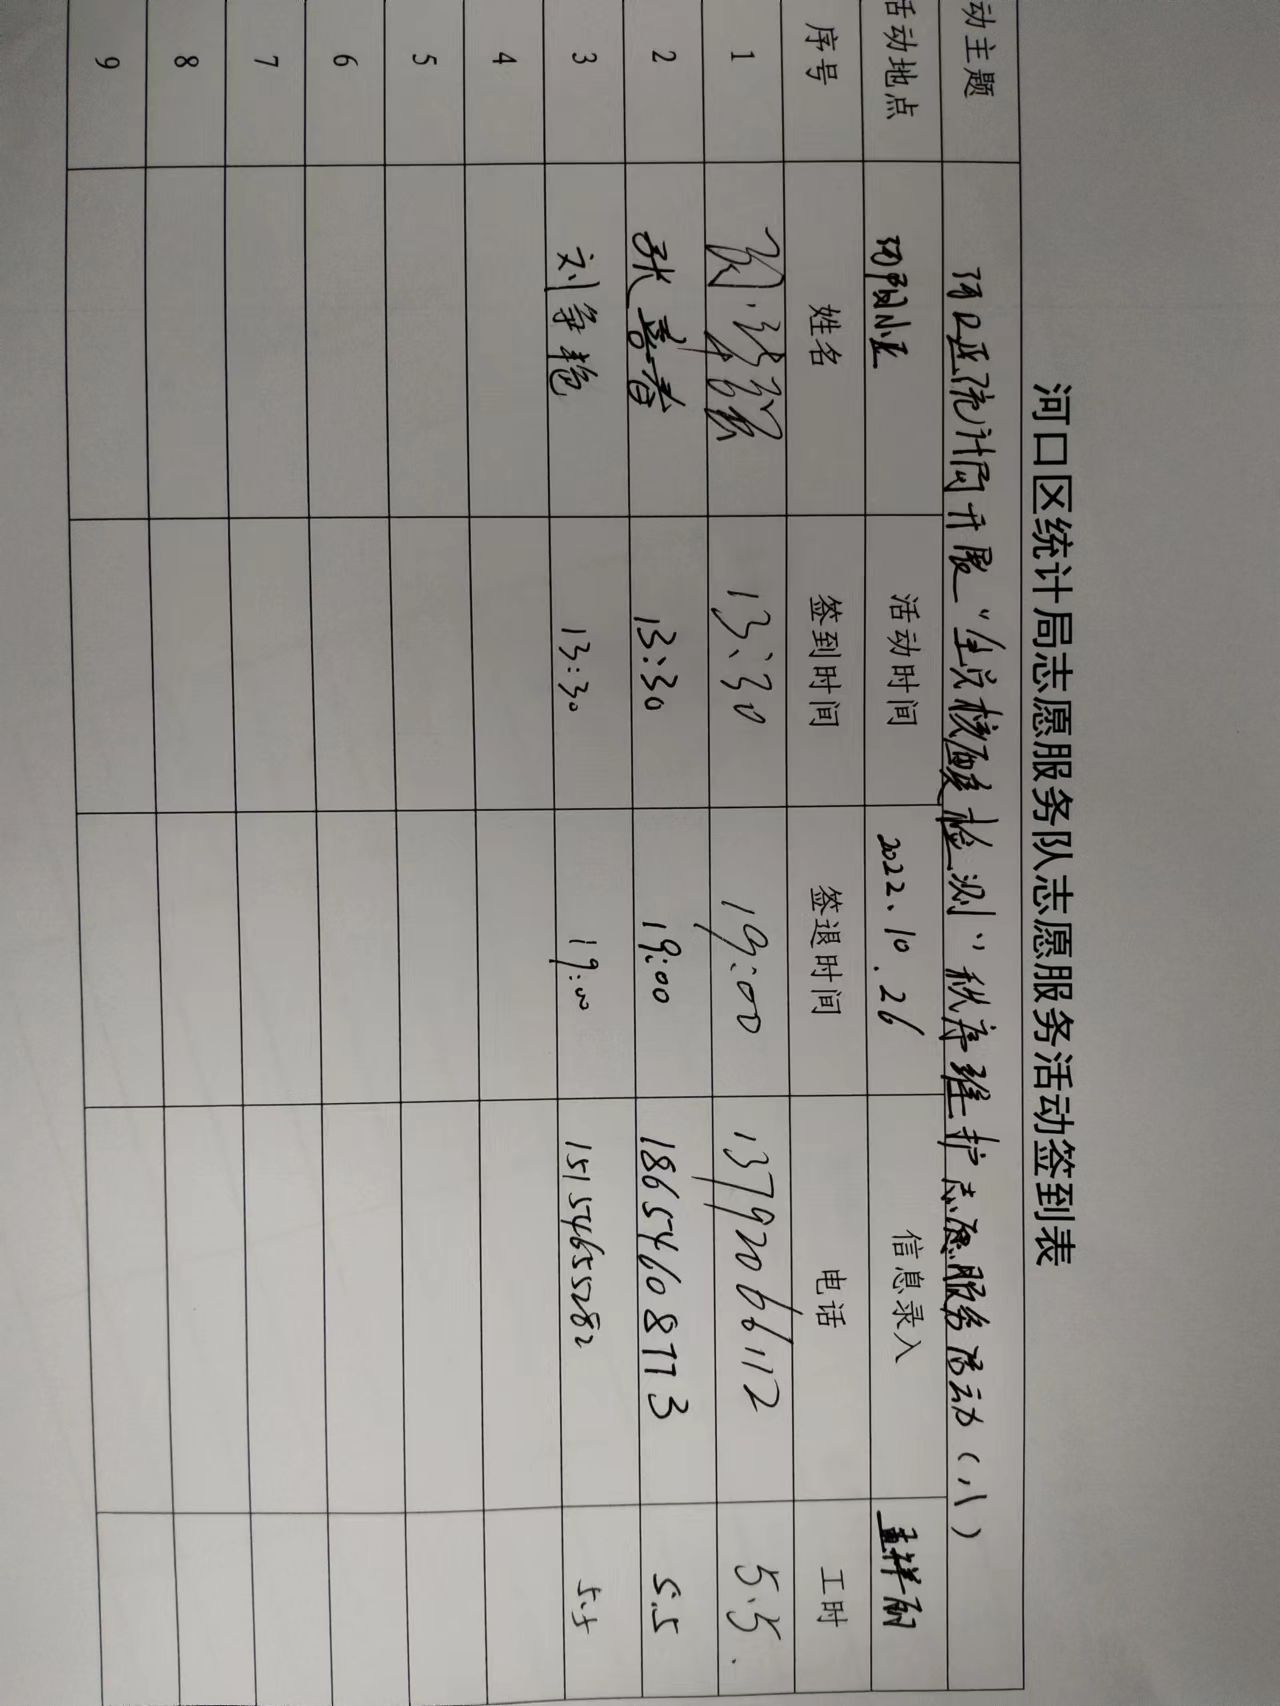 河口区统计局志愿服务队志愿服务活动签到表
动主题 河口区统计局开展“全员核酸检测”秩序维护志愿服务活动（八）
活动地点 河阳小区 活动时间 2022、10.26 信息录入
序号 姓名 签到时间 签退时间 电话 工时
1 13:30 19:00 13792066112 5.5.
2 张春 13:30 19:00 18654608773 5.5
3 刘争艳 13:30 19:00 15154655282 5.5
4
5
6
7
8
9